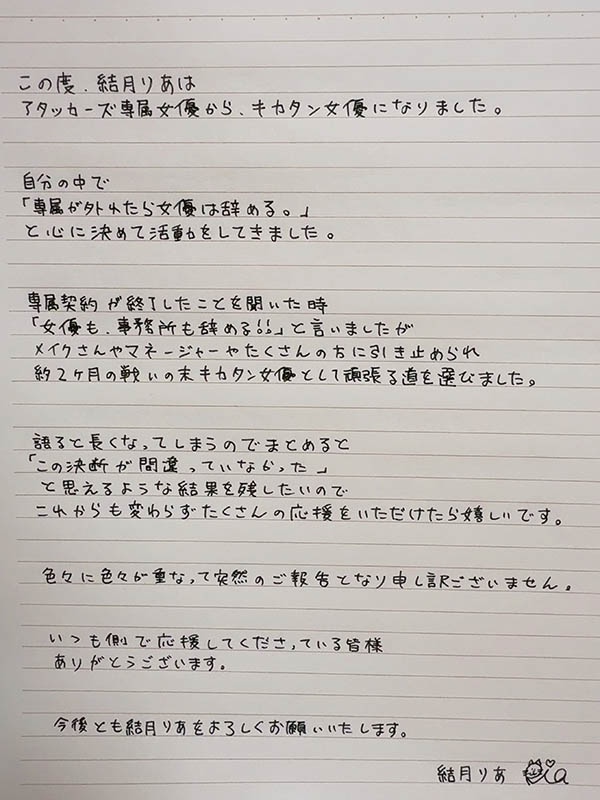 この度、結月りあは
アタッカーズ専属女優から、キカタン女優になりました。
自分の中で
「専属が外れたら女優は辞める。」
と心に決めて活動をしてきました。
専属契約が終了したことを聞いた時
「女優も、事務所も辞める!!」と言いましたが
メイクさんやマネージャーやたくさんの方に引き止められ
約2ヶ月の戦いの末キカタン女優として頑張る道を選びました。
語ると長くなってしまうのでまとめると
「この決断が間違っていなかった」
と思えるような結果を残したいので
これからも変わらずたくさんの応援をいただけたら嬉しいです。
色々に色々が重なって突然のご報告となり申し訳ございません。
いつも側で応援してくださっている皆様
ありがとうございます。
今後とも結月りあをよろしくお願いいたします。
結月りあ Ria